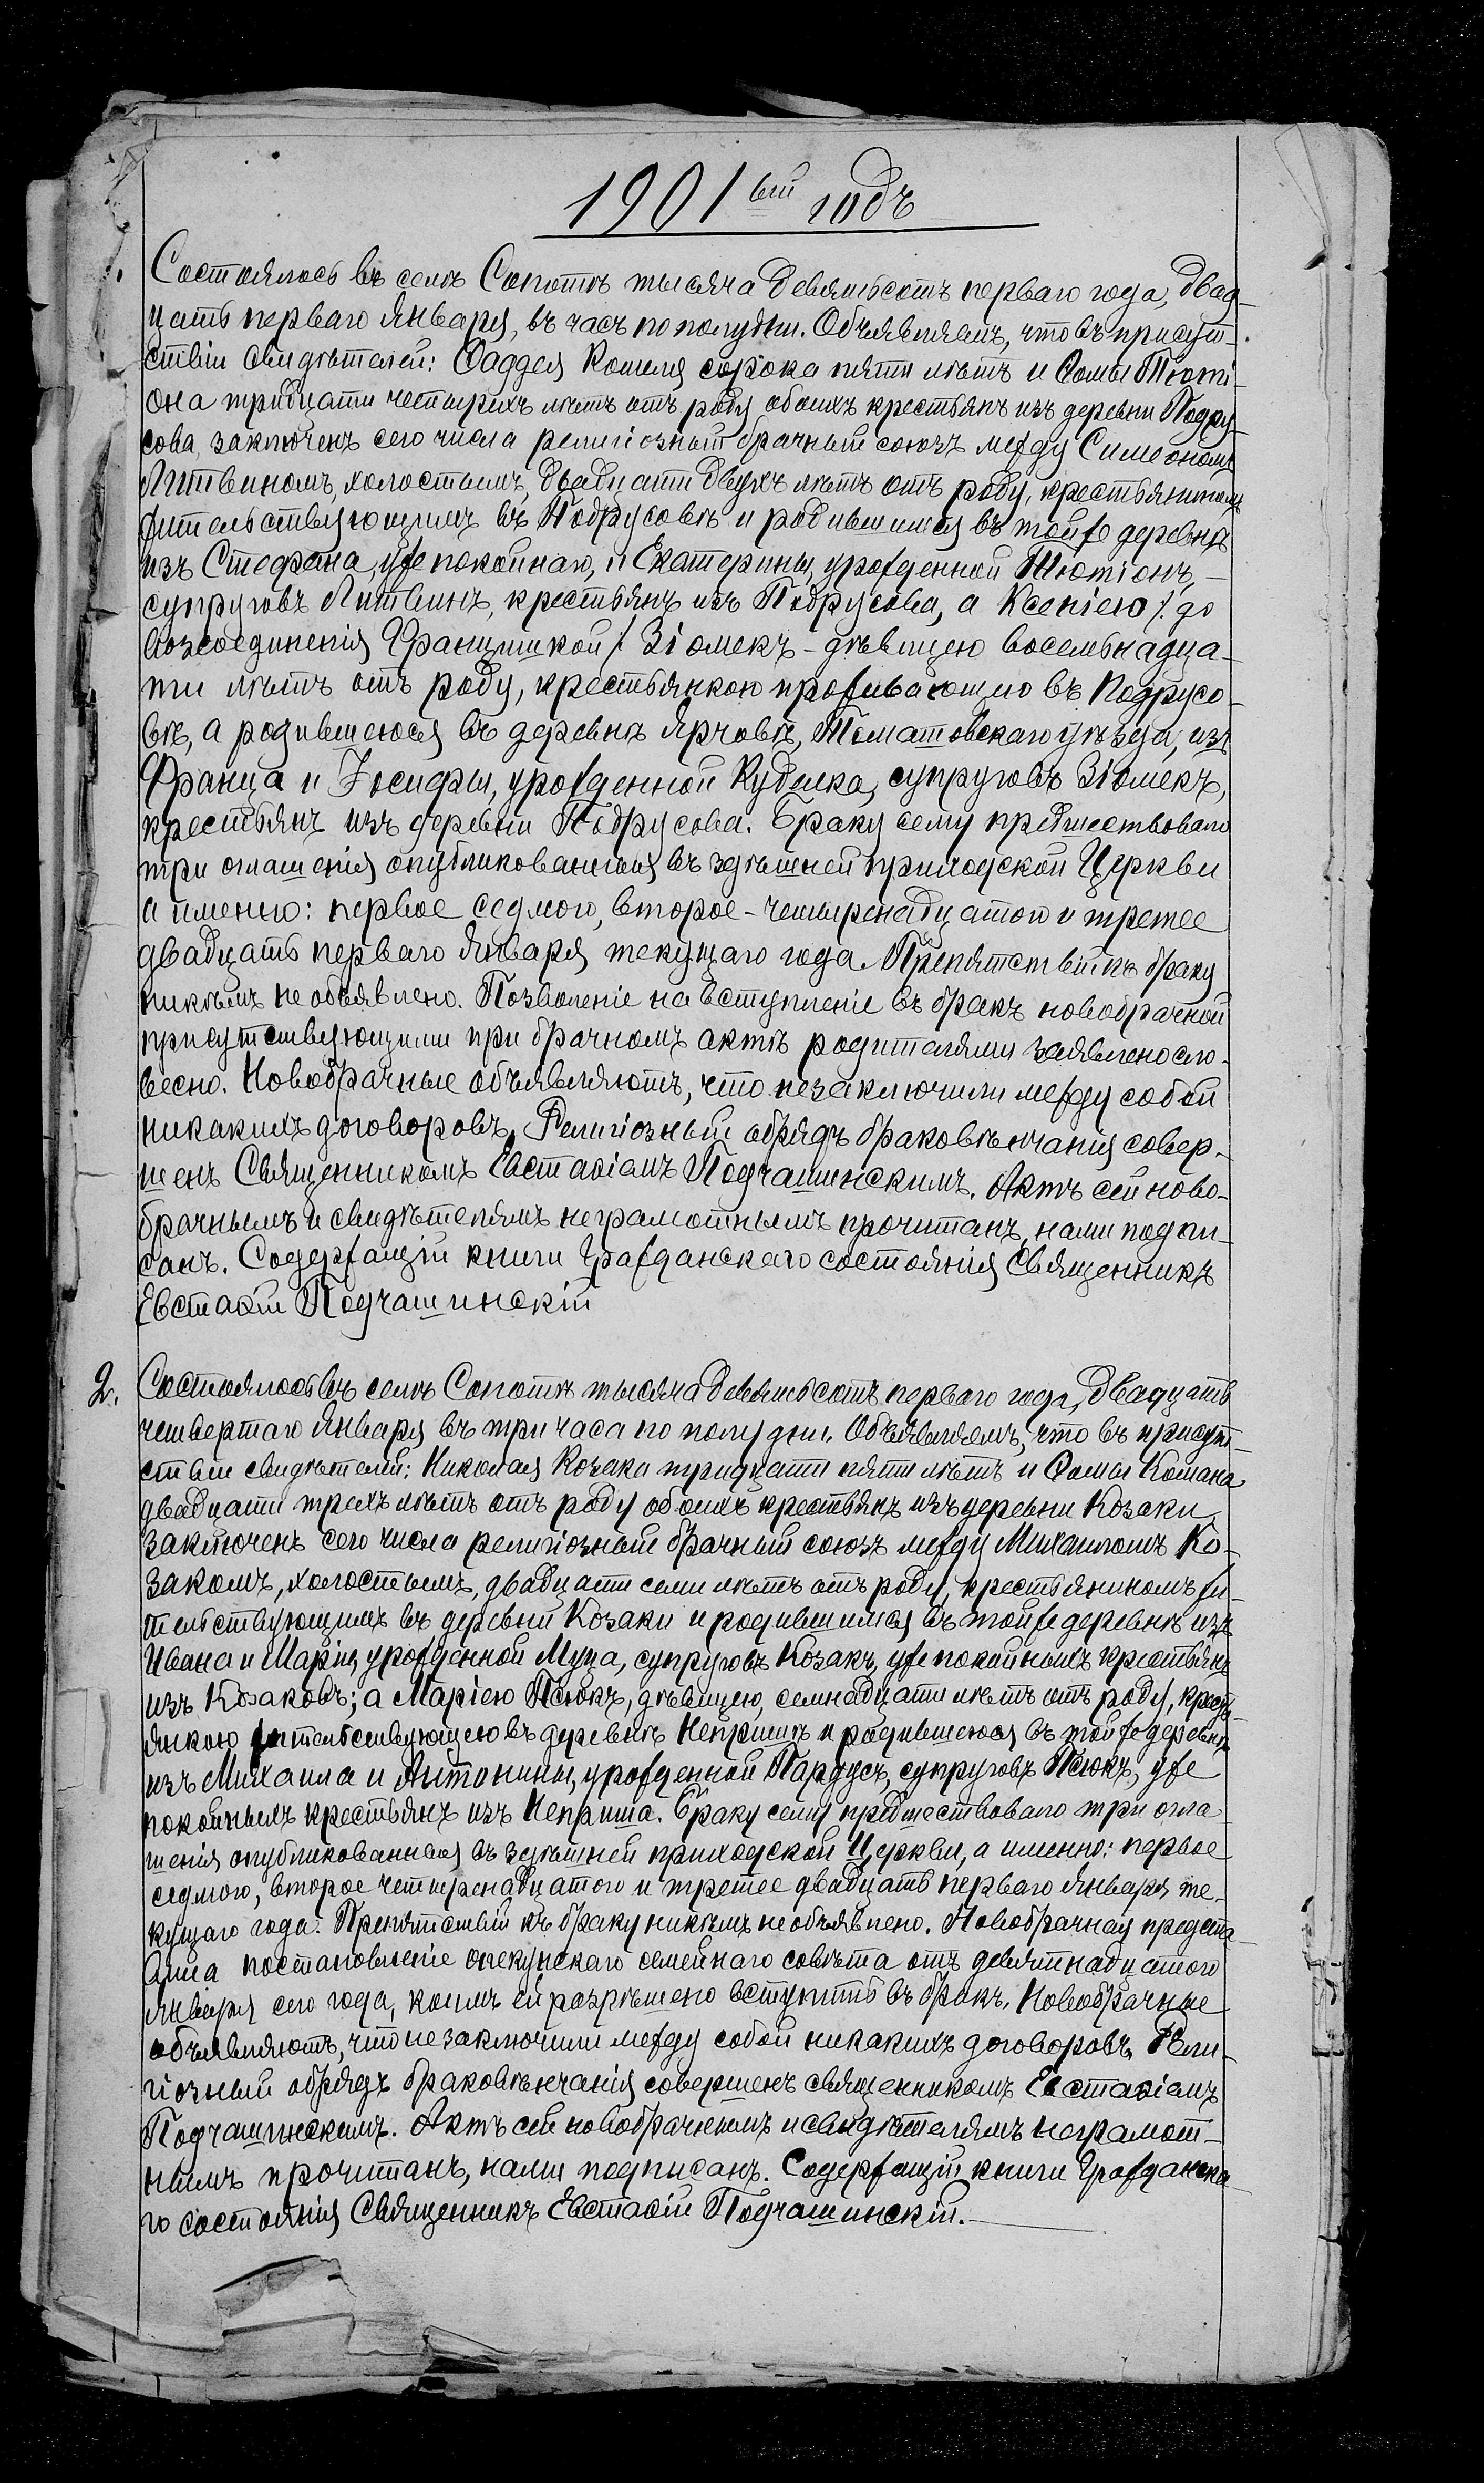 1901 ый годъ
Состоялось въ селѣ Сопотѣ тысяча девятьсотъ перваго года, двад-
цать перваго Января, въ часъ по полудни. Объявляемъ, что въ присут-
ствіи свидѣтелей: Ѳаддея Кошеля сорока пяти лѣтъ и Ѳомы Тюті-
она тридцати четырехъ лѣтъ отъ роду обоихъ крестьянъ изъ деревни Подру-
сова, заключенъ сего числа религіозный брачный союзъ между Симеономъ
Литвиномъ, холостымъ, двадцати двухъ лѣтъ отъ роду, крестьяниномъ
жительствующимъ въ Подрусовѣ и родившимся въ той же деревнѣ
изъ Стефана, уже покойнаго, и Екатерины, урожденной Тютіонъ, -
супруговъ Литвинъ, крестьянъ изъ Подрусова, а Ксеніею /: до
возсоединенія Францишкой / Зіомекъ - дѣвицею восемьнадца-
ти лѣтъ отъ роду, крестьянкою проживающею въ Подрусо-
вѣ, а родившеюся въ деревнѣ Ярчовѣ, Томашовскаго уѣзда, изъ
Франца и Іосифы, урожденной Куделка, супруговъ Зіомекъ,
крестьянъ изъ деревни Подрусова. Браку сему предшествовало
три оглашенія опубликованныя въ здѣшней приходской Церкви
а именно: первое седмого, второе - четыренадцатого и третее
двадцать перваго Января текущаго года. Препятствій къ браку
никѣмъ не объявлено. Позволеніе на вступленіе въ бракъ новобрачной
присутствующими при брачномъ актѣ родителями заявлено сло-
весно. Новобрачные объявляютъ, что незаключили между собой
никакихъ договоровъ. Религіозный обрядъ браковѣнчанія совер-
шенъ Священникомъ Евстаѳіемъ Подчашинскимъ. Актъ сей ново-
брачнымъ и свидѣтелямъ неграмотнымъ прочитанъ, нами подпи-
санъ. Содержащій книги Гражданскаго состоянія Священникъ
Евстаѳій Подчашинскій
2. Состоялось въ селѣ Сопотѣ тысяча девятьсотъ перваго года, двадцать
четвертаго Января въ три часа по полудни. Объявляемъ, что въ присут-
ствіи свидѣтелей: Николая Козака тридцати пяти лѣтъ и Ѳомы Комана
двадцати трехъ лѣтъ отъ роду обоихъ крестьянъ изъ деревни Козаки,
заключенъ сего числа религіозный брачный союзъ между Михаиломъ Ко-
закомъ, холостымъ, двадцати семи лѣтъ отъ роду, крестьяниномъ жи-
тельствующимъ въ деревни Козаки и родившимся въ той же деревнѣ изъ
Ивана и Маріи, урожденной Муца, супруговъ Козакъ, уже покойныхъ крестьянъ
изъ Козаковъ; а Маріею Псюкъ, дѣвицею, семнадцати лѣтъ отъ роду, кресть-
янкою жительствующею въ деревнѣ Непришѣ и родившеюся въ той же деревнѣ
изъ Михаила и Антонины, урожденной Пардусъ, супруговъ Псюкъ, уже
покойныхъ крестьянъ изъ Неприша. Браку сему предшествовало три огла-
шенія опубликованныя въ здѣшней приходской Церкви, а именно: первое
седмого, второе четыренадцатого и третее двадцать перваго Января те-
кущаго года. Препятствій къ браку никѣмъ не объявлено. Новобрачная предста-
вила постановленіе опекунскаго семейнаго совѣта отъ девятнадцатого
Января сего года, коимъ ей разрѣшено вступить въ бракъ. Новобрачные
объявляютъ, что незаключили между собой никакихъ договоровъ. Рели-
гіозный обрядъ браковѣнчанія совершенъ священникомъ Евстаѳіемъ
Подчашинскимъ. Актъ сей новобрачнымъ и свидѣтелямъ неграмот-
нымъ прочитанъ, нами подписанъ. Содержащій книги Гражданска-
го состоянія Священникъ Евстаѳій Подчашинскій.